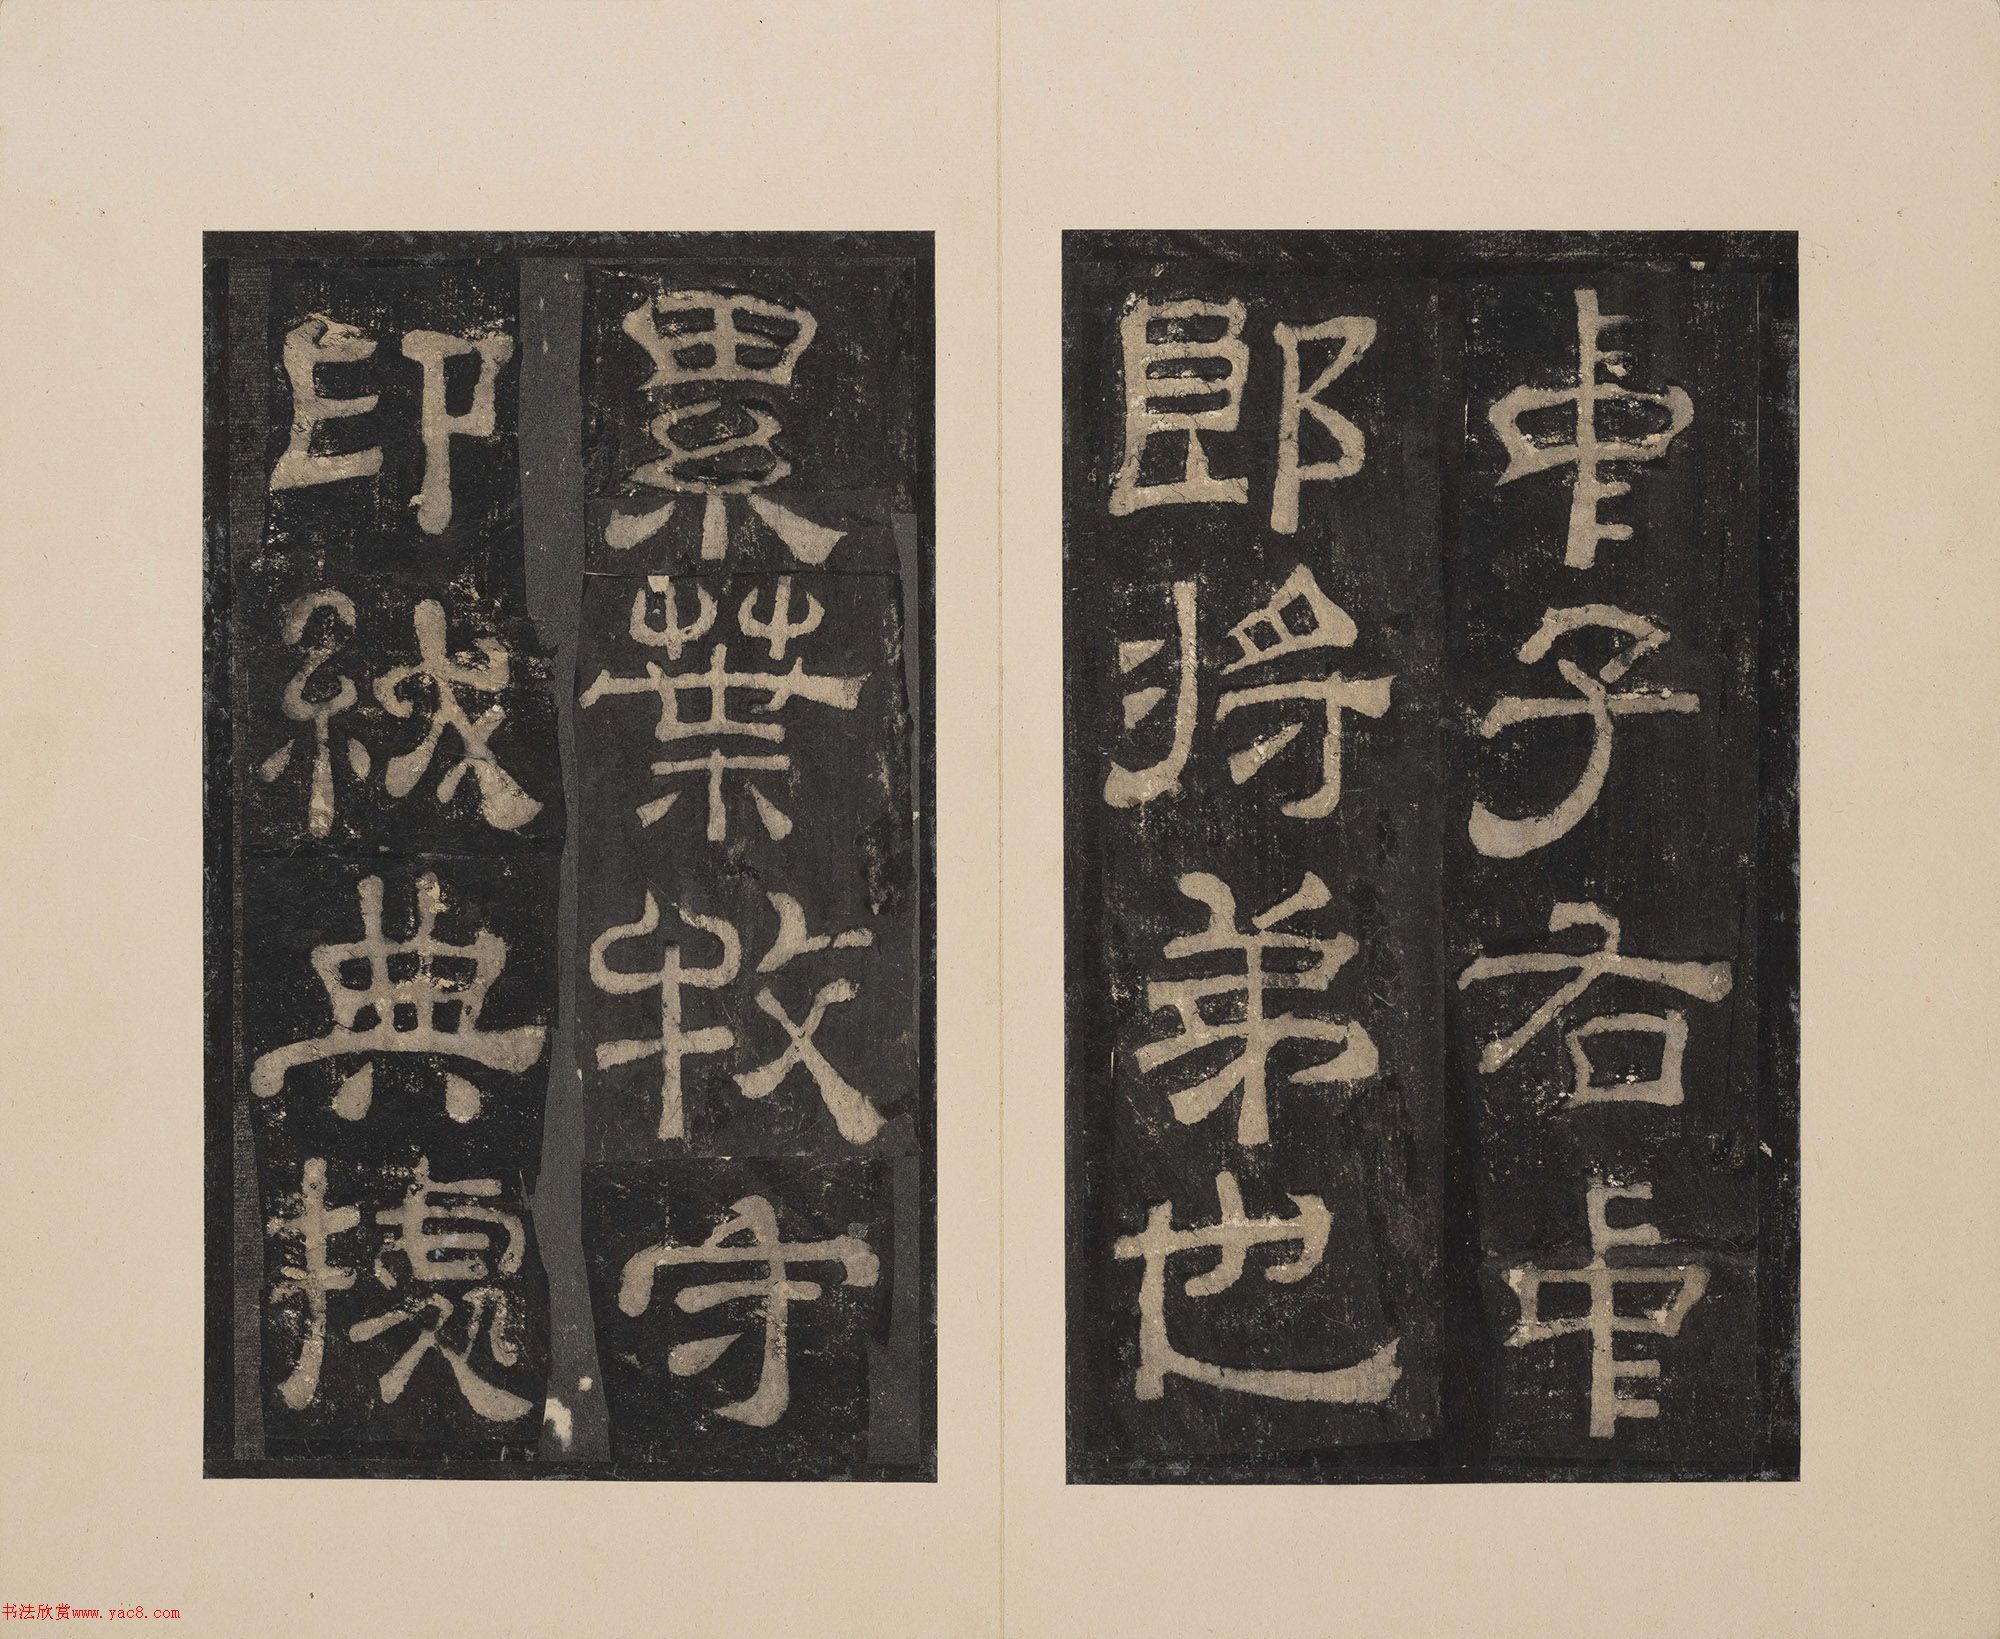 中子右中
郎將弟也
累葉牧守
印紱典據
书法欣赏www.yac8.com